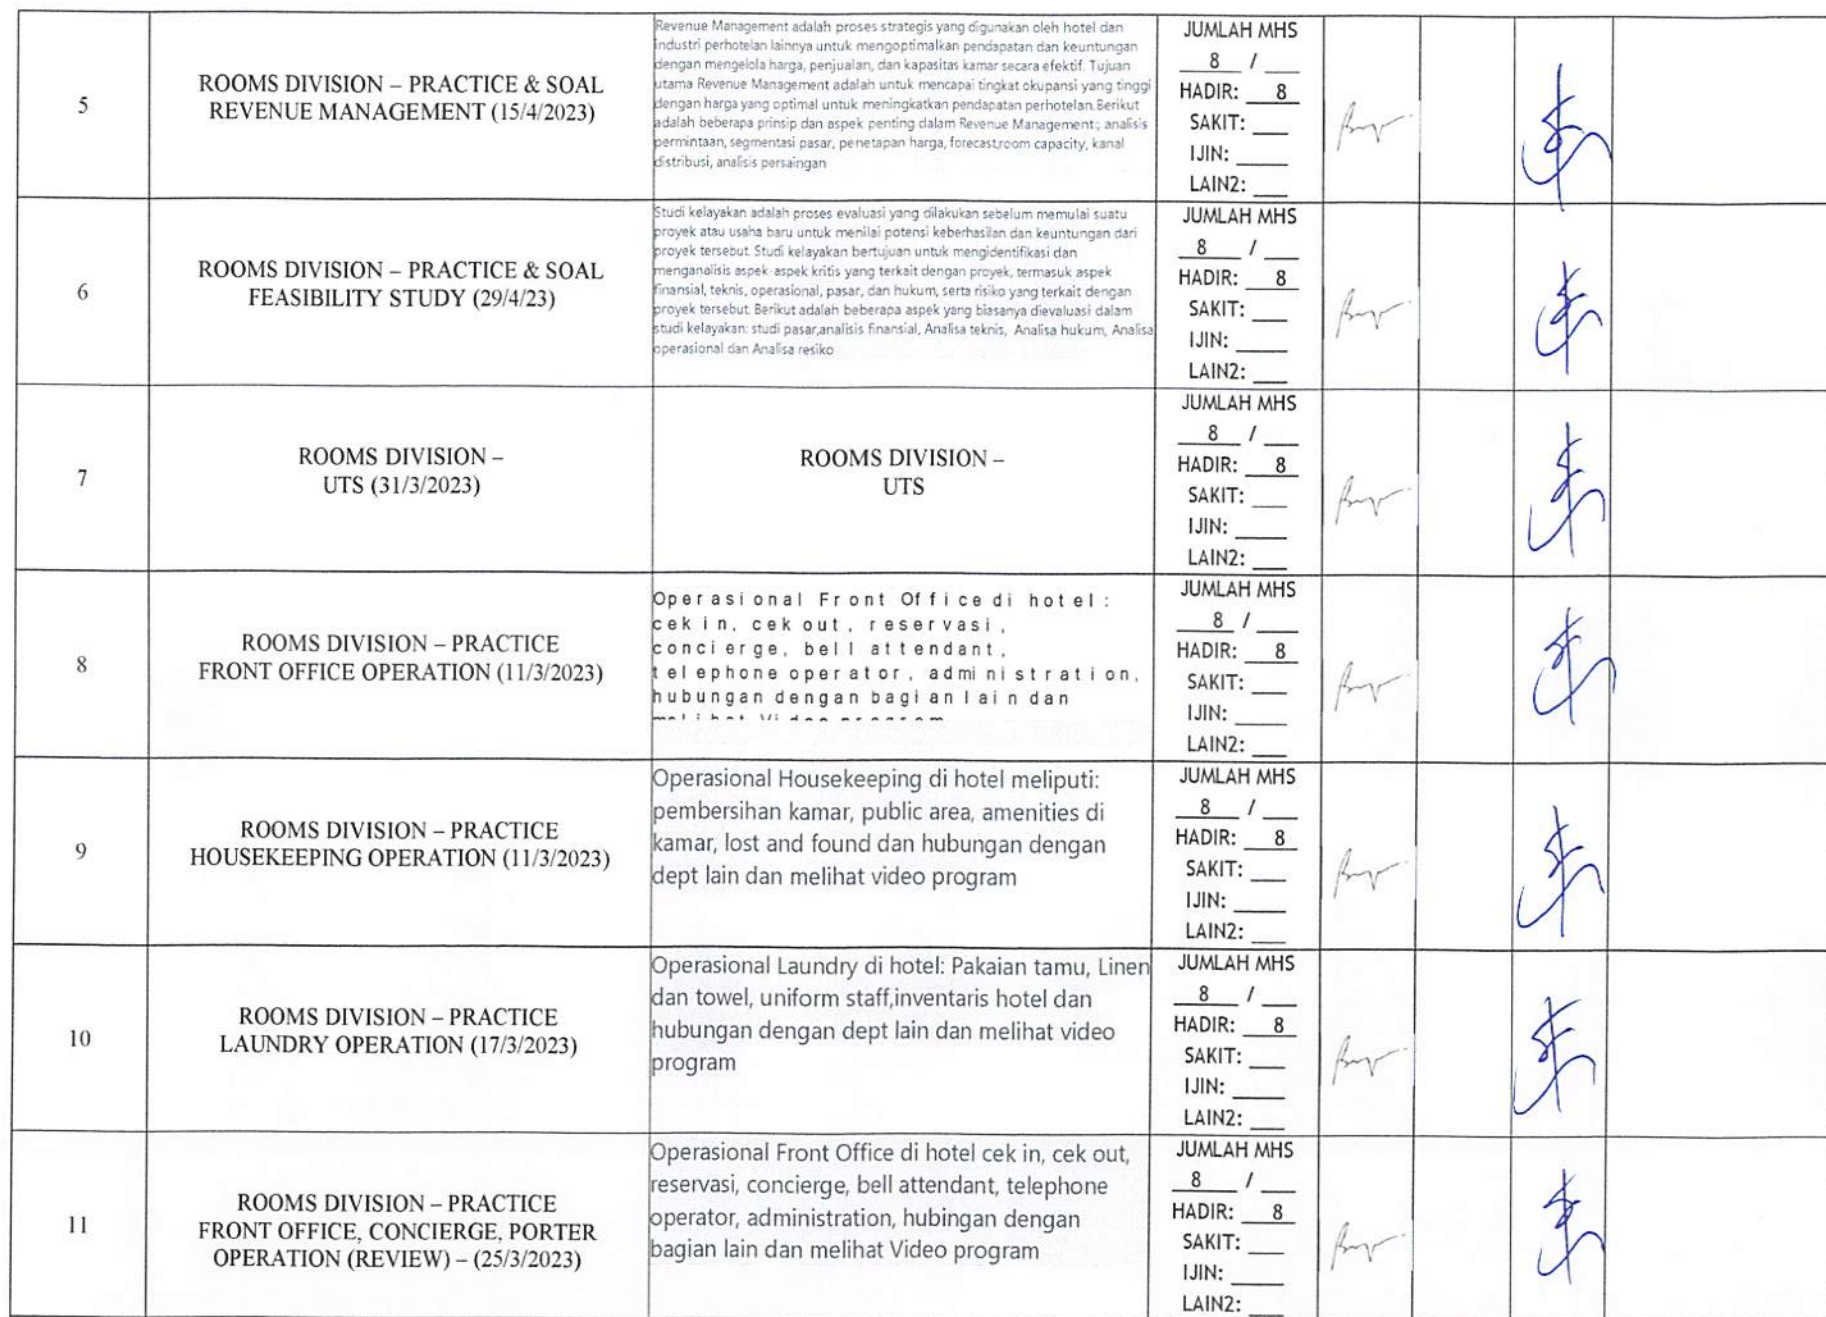 5
ROOMS DIVISION – PRACTICE & SOAL
REVENUE MANAGEMENT (15/4/2023)
Revenue Management adalah proses strategis yang digunakan oleh hotel dan
industri perhotelan lainnya untuk mengoptimalkan pendapatan dan keuntungan
dengan mengelola harga, penjualan, dan kapasitas kamar secara efektif. Tujuan
utama Revenue Management adalah untuk mencapai tingkat okupansi yang tinggi
dengan harga yang optimal untuk meningkatkan pendapatan perhotelan.Berikut
adalah beberapa prinsip dan aspek penting dalam Revenue Management:; analisis
permintaan, segmentasi pasar, penetapan harga, forecast,room capacity, kanal
distribusi, analisis persaingan
JUMLAH MHS
8 / ___
HADIR: 8
SAKIT: ___
IJIN: ____
LAIN2: ___
6
ROOMS DIVISION – PRACTICE & SOAL
FEASIBILITY STUDY (29/4/23)
Studi kelayakan adalah proses evaluasi yang dilakukan sebelum memulai suatu
proyek atau usaha baru untuk menilai potensi keberhasilan dan keuntungan dari
proyek tersebut. Studi kelayakan bertujuan untuk mengidentifikasi dan
menganalisis aspek-aspek kritis yang terkait dengan proyek, termasuk aspek
finansial, teknis, operasional, pasar, dan hukum, serta risiko yang terkait dengan
proyek tersebut. Berikut adalah beberapa aspek yang biasanya dievaluasi dalam
studi kelayakan: studi pasar,analisis finansial, Analisa teknis, Analisa hukum, Analisa
operasional dan Analisa resiko
JUMLAH MHS
8 / ___
HADIR: 8
SAKIT: ___
IJIN: ____
LAIN2: ___
7
ROOMS DIVISION –
UTS (31/3/2023)
ROOMS DIVISION –
UTS
JUMLAH MHS
8 / ___
HADIR: 8
SAKIT: ___
IJIN: ____
LAIN2: ___
8
ROOMS DIVISION – PRACTICE
FRONT OFFICE OPERATION (11/3/2023)
Operasional Front Office di hotel:
cek in, cek out, reservasi,
concierge, bell attendant,
telephone operator, administration,
hubungan dengan bagian lain dan
melihat Video program
JUMLAH MHS
8 / ___
HADIR: 8
SAKIT: ___
IJIN: ____
LAIN2: ___
9
ROOMS DIVISION – PRACTICE
HOUSEKEEPING OPERATION (11/3/2023)
Operasional Housekeeping di hotel meliputi:
pembersihan kamar, public area, amenities di
kamar, lost and found dan hubungan dengan
dept lain dan melihat video program
JUMLAH MHS
8 / ___
HADIR: 8
SAKIT: ___
IJIN: ____
LAIN2: ___
10
ROOMS DIVISION – PRACTICE
LAUNDRY OPERATION (17/3/2023)
Operasional Laundry di hotel: Pakaian tamu, Linen
dan towel, uniform staff,inventaris hotel dan
hubungan dengan dept lain dan melihat video
program
JUMLAH MHS
8 / ___
HADIR: 8
SAKIT: ___
IJIN: ____
LAIN2: ___
11
ROOMS DIVISION – PRACTICE
FRONT OFFICE, CONCIERGE, PORTER
OPERATION (REVIEW) – (25/3/2023)
Operasional Front Office di hotel cek in, cek out,
reservasi, concierge, bell attendant, telephone
operator, administration, hubingan dengan
bagian lain dan melihat Video program
JUMLAH MHS
8 / ___
HADIR: 8
SAKIT: ___
IJIN: ____
LAIN2: ___